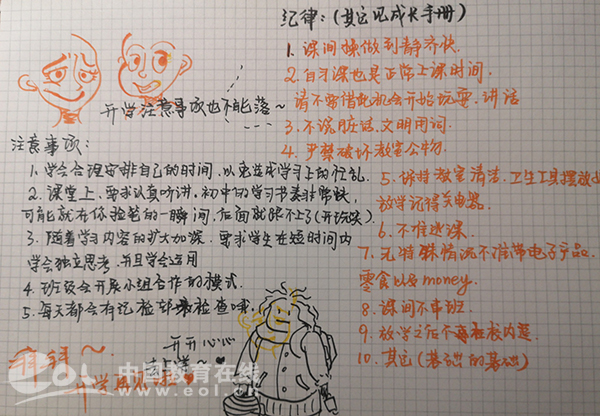 开学注意事项也不能落~
注意事项:
1. 学会合理安排自己的时间,以免造成学习上的忙乱.
2. 课堂上,要求认真听讲,初中的学习节奏非常快,
可能就在你捡笔的一瞬间,后面就跟不上了(开玩笑)
3. 随着学习内容的扩大加深,要求学生在短时间内
学会独立思考,并且学会运用
4. 班级会开展小组合作的模式.
5. 每天都会有记检部来检查哦.
拜拜~
开学再见
开开心心
纪律:(其它见成长手册)
1. 课间操做到静齐快
2. 自习课也是正常上课时间.
请不要借此机会开始玩耍.讲话
3. 不说脏话.文明用词.
4. 严禁破坏教室公物.
5. 保持教室清洁.卫生工具摆放
放学记得关电器.
6. 不准逃课.
7. 无特殊情况不准带电子产品.
零食以及money.
8. 课间不串班.
9. 放学之后不要在校内逗
10. 其它(基础的基础)
eol 中国教育在线
www.eol.cn